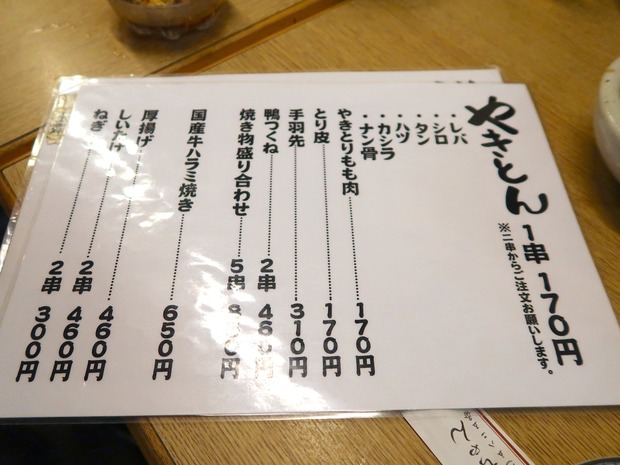 やきとん 1串 170円
※二串からご注文お願いします。
・レバ
・シロ
・タン
・ハツ
・カシラ
・ナン骨
やきとりもも肉 170円
とり皮 170円
手羽先 310円
鴨つくね 2串 460円
焼き物盛り合わせ 5串
国産牛ハラミ焼き 650円
厚揚げ 460円
しいたけ 2串 460円
ねぎ 2串 300円